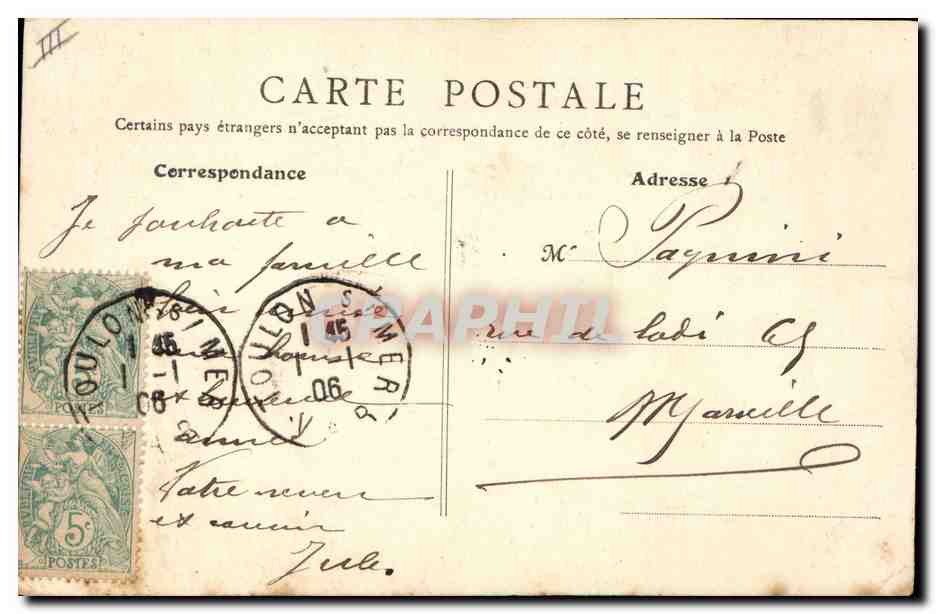 III
CARTE POSTALE
Certains pays étrangers n'acceptant pas la correspondance de ce côté, se renseigner à la Poste
Correspondance
Adresse
Je souhaite a
ma famille
bonne
et bonne
année
Votre neveu
et cousin
Jules.
Mr Pagnini
rue de Lodi 65
Marseille
TOULON S MER
1 45
1 - 1
06
VAR
TOULON S MER
1 45
1 - 1
06
POSTES
5c
POSTES
CPAPHIL